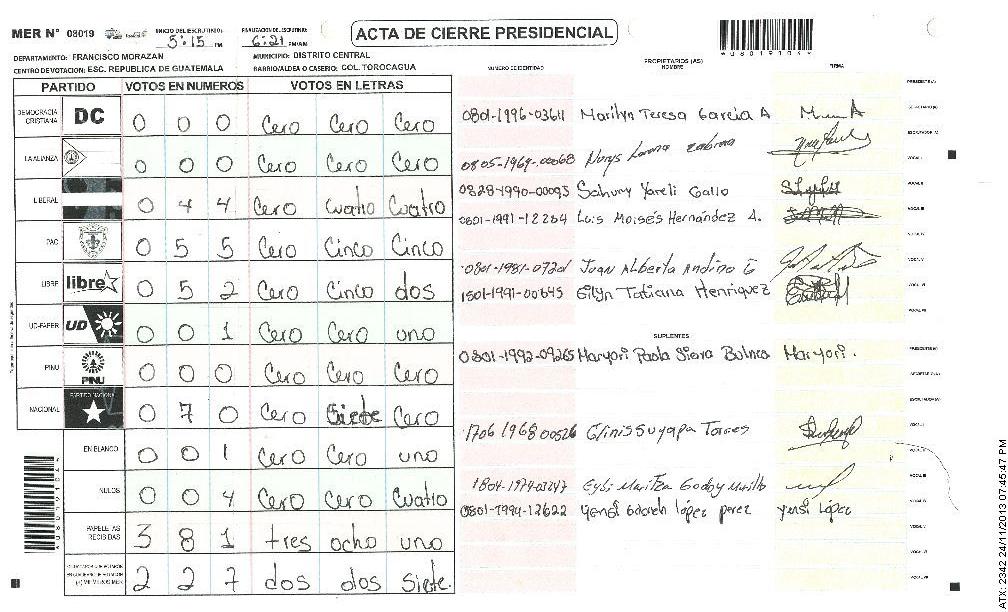 MER N° 08019 INICIO DEL ESCRUTINIO: 5:15 PM FINALIZACION DEL ESCRUTINIO: 6:21 PM/AM ACTA DE CIERRE PRESIDENCIAL
DEPARTAMENTO: FRANCISCO MORAZAN MUNICIPIO: DISTRITO CENTRAL
CENTRO DE VOTACION: ESC. REPUBLICA DE GUATEMALA BARRIO/ALDEA O CASERIO: COL. TOROCAGUA
NUMERO DE IDENTIDAD PROPIETARIOS (AS) NOMBRE FIRMA
PARTIDO VOTOS EN NUMEROS VOTOS EN LETRAS
DEMOCRACIA CRISTIANA DC 0 0 0 Cero Cero Cero
LA ALIANZA 0 0 0 Cero Cero Cero
LIBERAL 0 4 4 Cero Cuatro Cuatro
PAC 0 5 5 Cero Cinco Cinco
LIBRE libre 0 5 2 Cero Cinco dos
UD-FAPER UD 0 0 1 Cero Cero uno
PINU PINU 0 0 0 Cero Cero Cero
NACIONAL PARTIDO NACIONAL 0 7 0 Cero Siete Cero
EN BLANCO 0 0 1 Cero Cero uno
NULOS 0 0 4 Cero Cero Cuatro
PAPELETAS RECIBIDAS 3 8 1 tres ocho uno
2 2 7 dos dos Siete.
0801-1996-03611 Marilyn Teresa Garcia A
0805-1969-00068 Norys Lorena
0828-1990-00093 Sahury Yareli Gallo
0801-1991-12284 Luis Moisés Hernández A.
0801-1981-07201 Juan Alberto Andino G
1501-1991-00645 Eilyn Tatiana Henriquez
SUPLENTES
0801-1992-09265 Maryori Paola Sierra Maryori.
1706 1968 00526 Glinis Suyapa Torres
1804-1974-03247 Maritza Godoy Murillo
0801-1994-12622 Yensi lópez perez yensi lópez
ATX: 2342 24/11/2013 07:45:47 PM